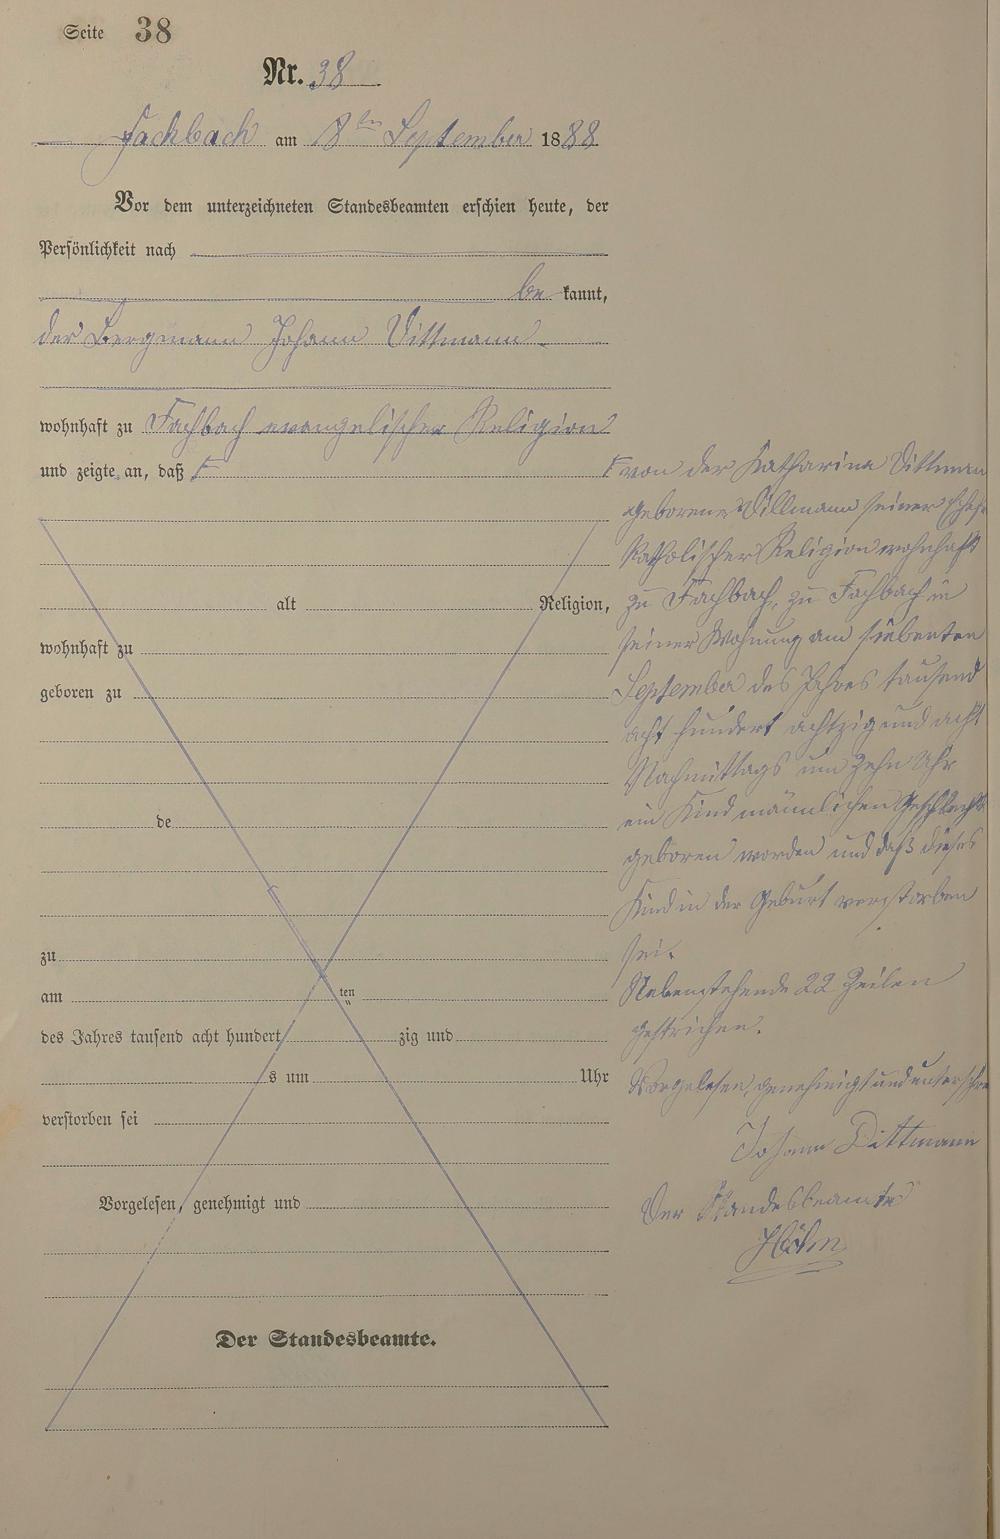 Seite 38
Nr. 38
Fachbach am 8ten September 1888
Vor dem unterzeichneten Standesbeamten erschien heute, der
Persönlichkeit nach
be kannt,
der Bergmann Johann Dittmann
wohnhaft zu Fachbach evangelischer Religion
und zeigte an, daß F
alt Religion,
wohnhaft zu
geboren zu
de
zu
am ten
des Jahres tausend acht hundert zig und
s um Uhr
verstorben sei
Vorgelesen, genehmigt und
Der Standesbeamte.
F von der Katharina Dittmann
geborene Willmann seiner Ehefr
katholischer Religion wohnhaft
zu Fachbach, zu Fachbach in
seiner Wohnung am siebenten
September des Jahres tausend
acht hundert achtzig und acht
Nachmittags um zehn Uhr
ein Kind männlichen Geschlechts
geboren worden und daß dieses
Kind in der Geburt verstorben
sei.
Nebenstehende 22 Zeilen
gestrichen.
Vorgelesen, genehmigt und unterschrie
Johann Dittmann
Der Standesbeamte